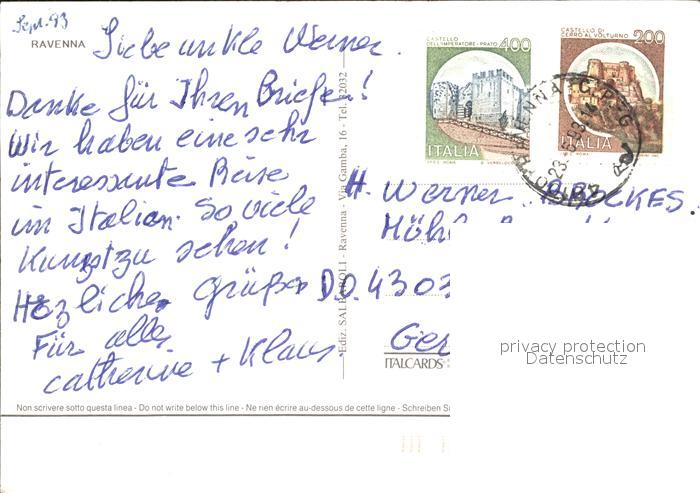 Sept. 93
RAVENNA
Liebe unkle Werner.
Danke für Ihren Briefe!
Wir haben eine sehr
interessante Reise
im Italien. So viele
Kunst zu sehen!
Herzliche Grüße
Für alle
catherine + Klaus
Ediz. SALBAROLI - Ravenna - Via Gamba, 16 - Tel. 32032
CASTELLO
DELL'IMPERATORE - PRATO
400
ITALIA
CASTELLO DI
CERRO AL VOLTURNO
200
ITALIA
RAVENNA
H. Werner BROCKES.
D.O. 4303
Ger
ITALCARDS
privacy protection
Datenschutz
Non scrivere sotto questa linea - Do not write below this line - Ne rien écrire au-dessous de cette ligne - Schreiben S